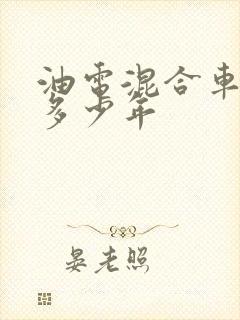 油電混合車
多少年
晏老照